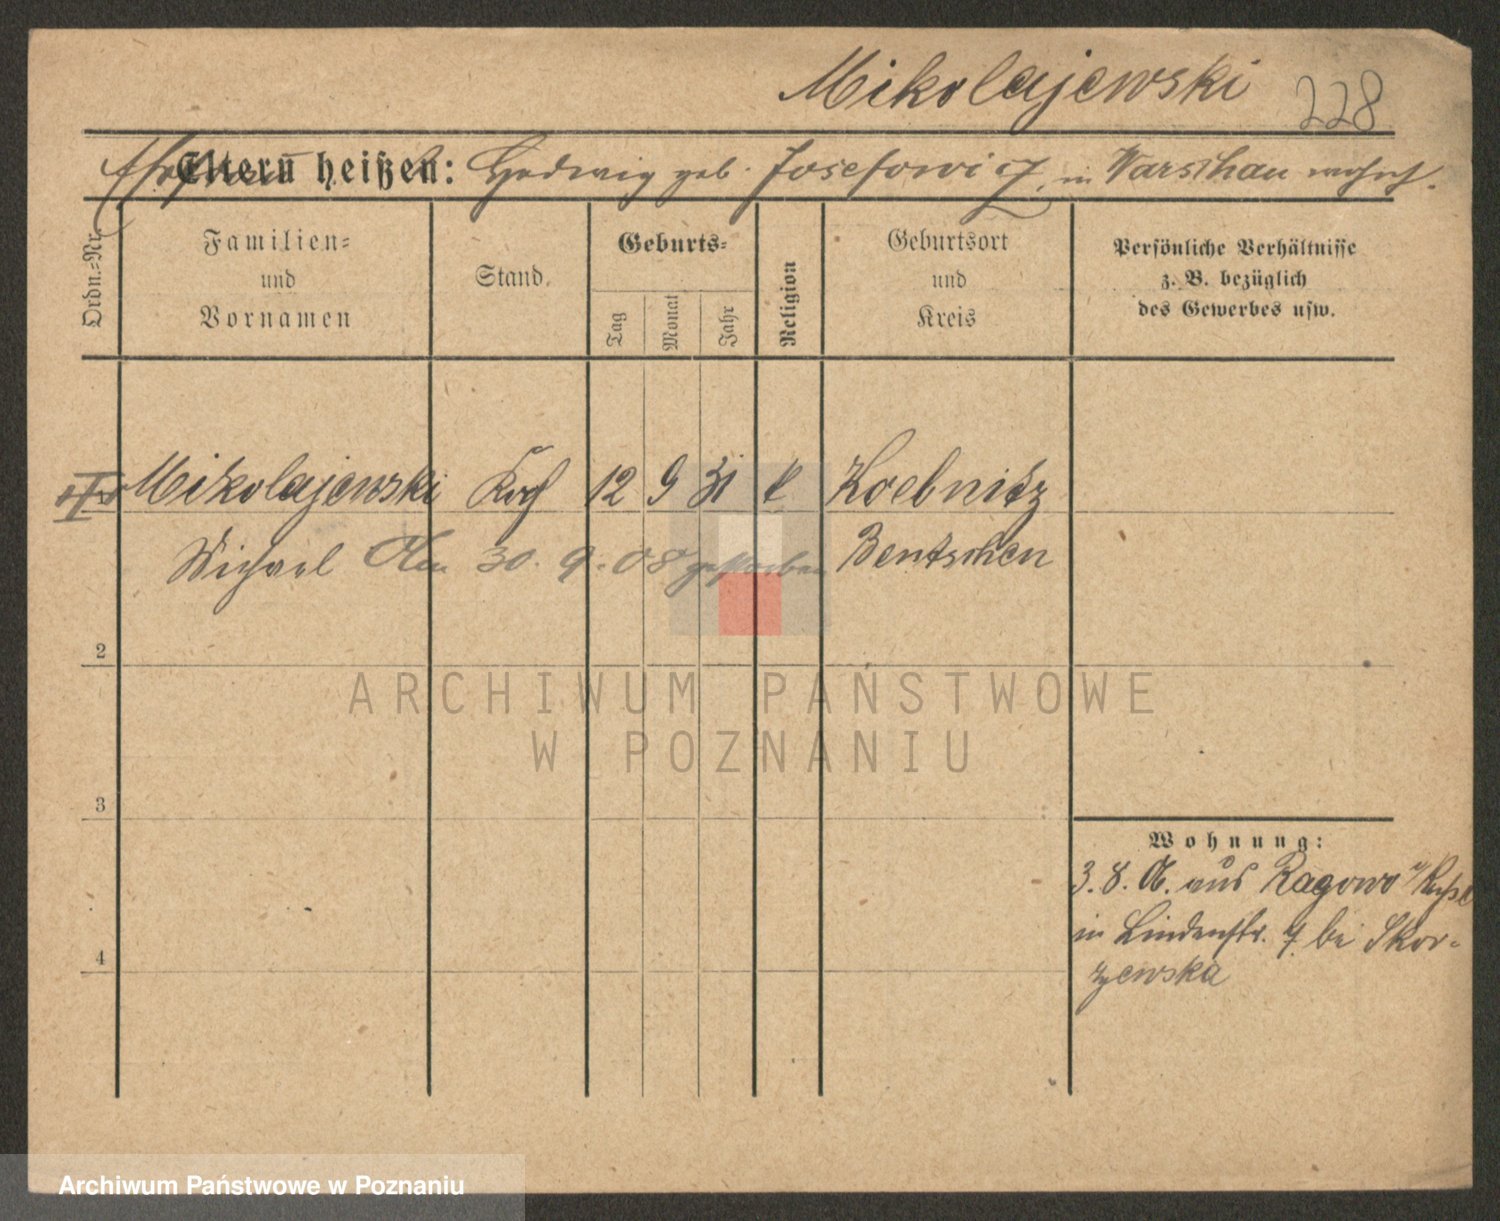 Mikolajewski 228
Eltern heißen: Hedwig geb. Josefowicz, in Warschau wohnh.
Ordn.-Nr.
Familien-
und
Vornamen
Stand.
Geburts-
Tag
Monat
Jahr
Religion
Geburtsort
und
Kreis
Persönliche Verhältnisse
z. B. bezüglich
des Gewerbes usw.
Mikolajewski Koch 12 9 31 k Koebnitz
Michael Am 30. 9. 08 gestorben Bentschen
2
3
4
Wohnung:
3. 8. 06. aus Ragowo
in Lindenstr. 7 bei Skor-
zewska
ARCHIWUM PAŃSTWOWE
W POZNANIU
Archiwum Państwowe w Poznaniu